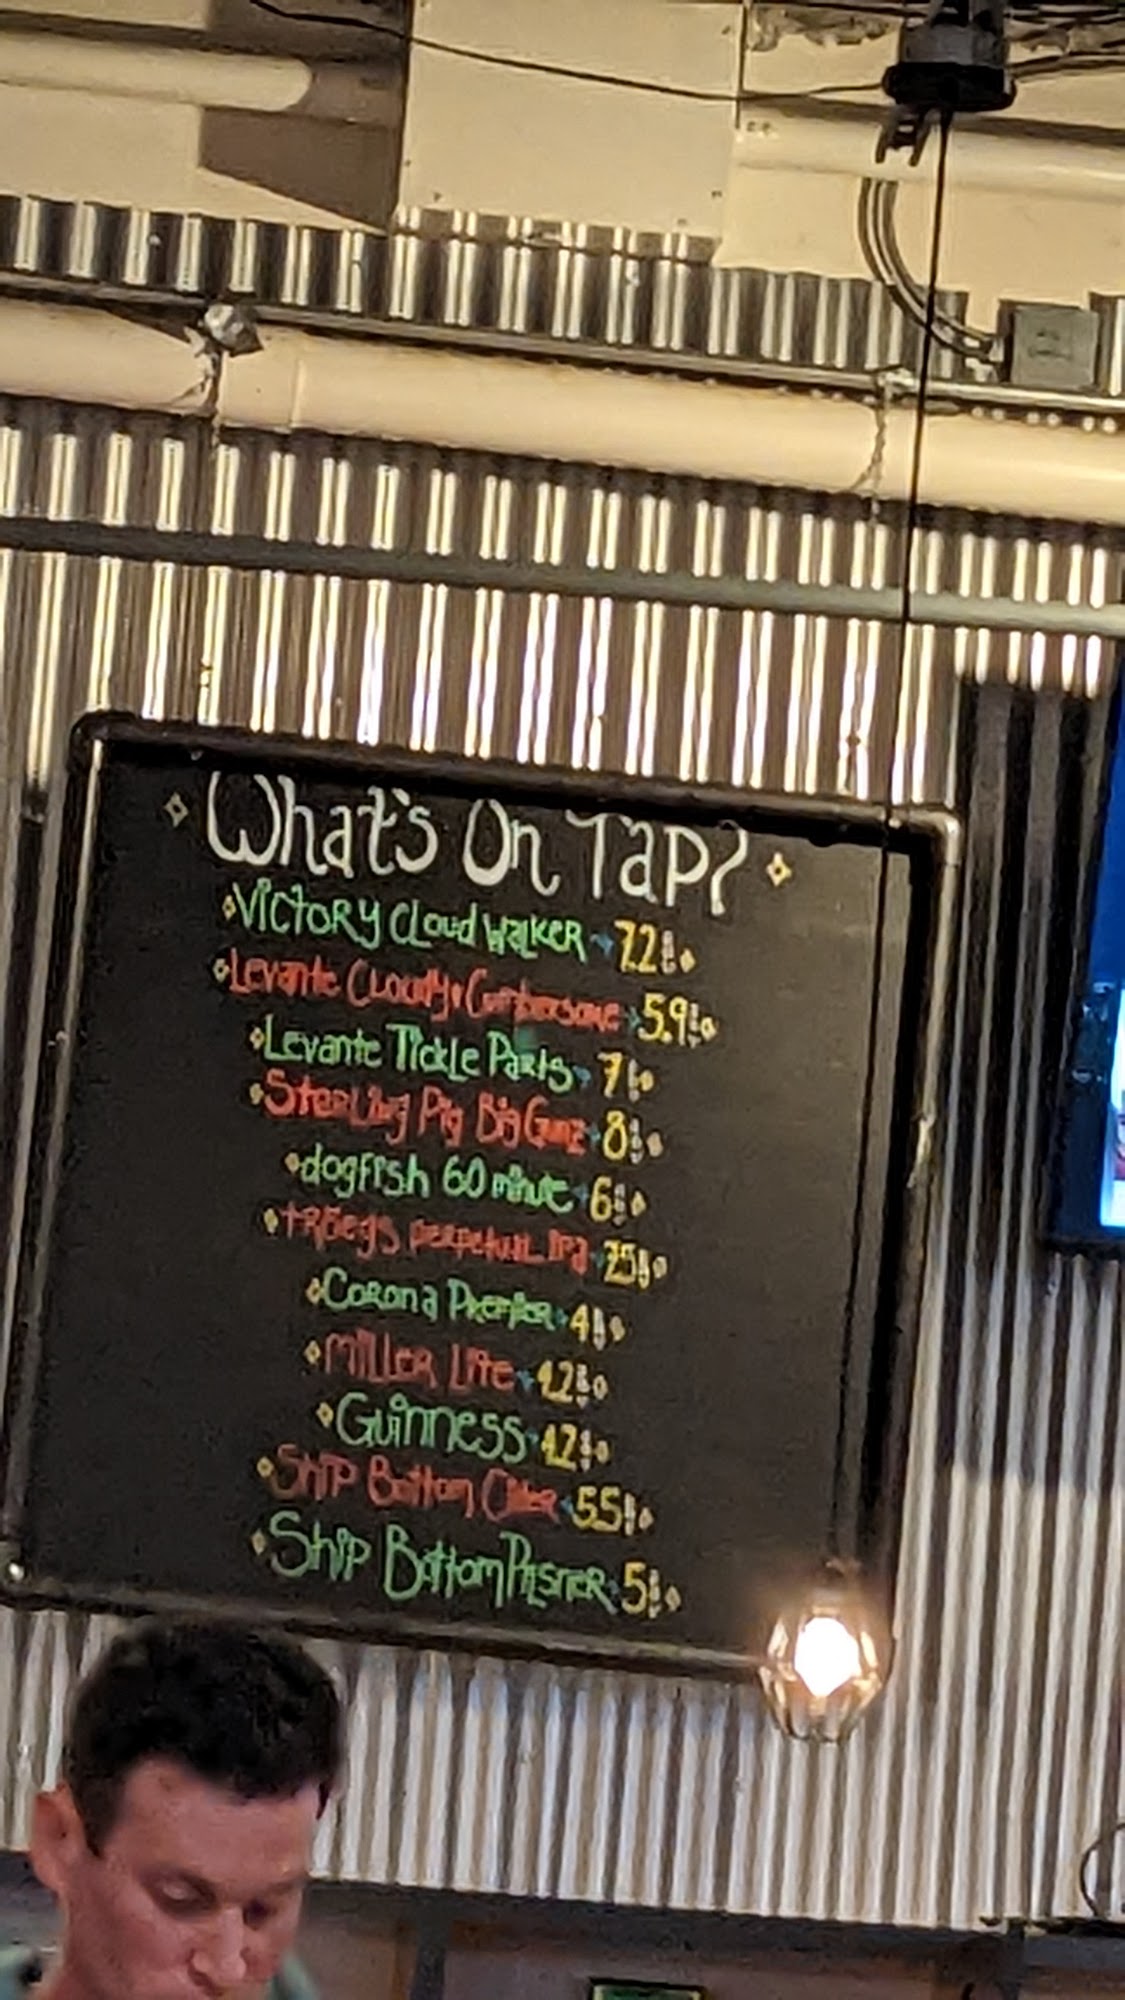 What's On Tap?
Victory Cloud Walker 7.2%
Levante Cloudy & Cumbersome 5.9%
Levante Tickle Parts 7%
Sterling Pig Big Gunz 8%
dogfish 60 minute 6%
tröegs perpetual IPA 7.5%
Corona Premier 4%
Miller Lite 4.2%
Guinness 4.2%
Ship Bottom Cider 5.5%
Ship Bottom Pilsner 5%